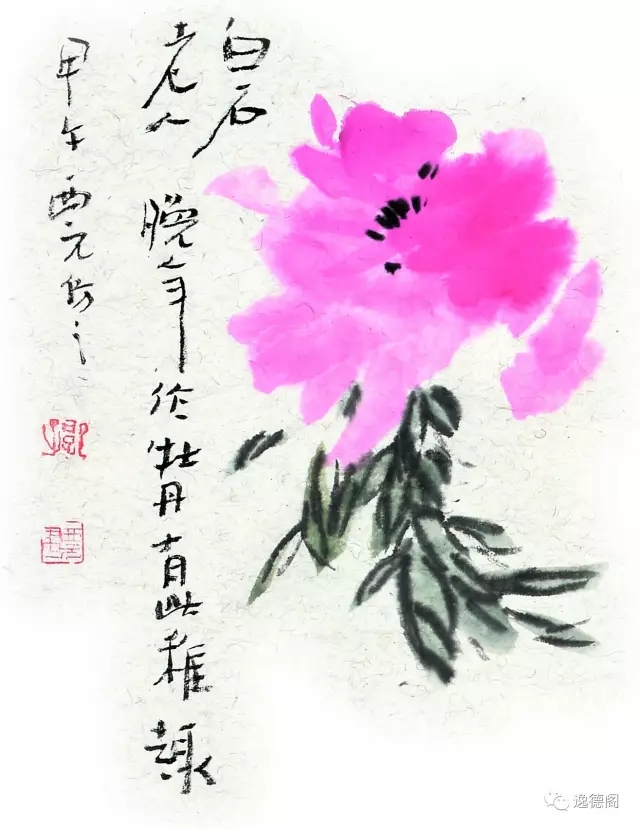 白石
老人 晚年作牡丹有此稚趣
甲午西元仿之
逸德阁